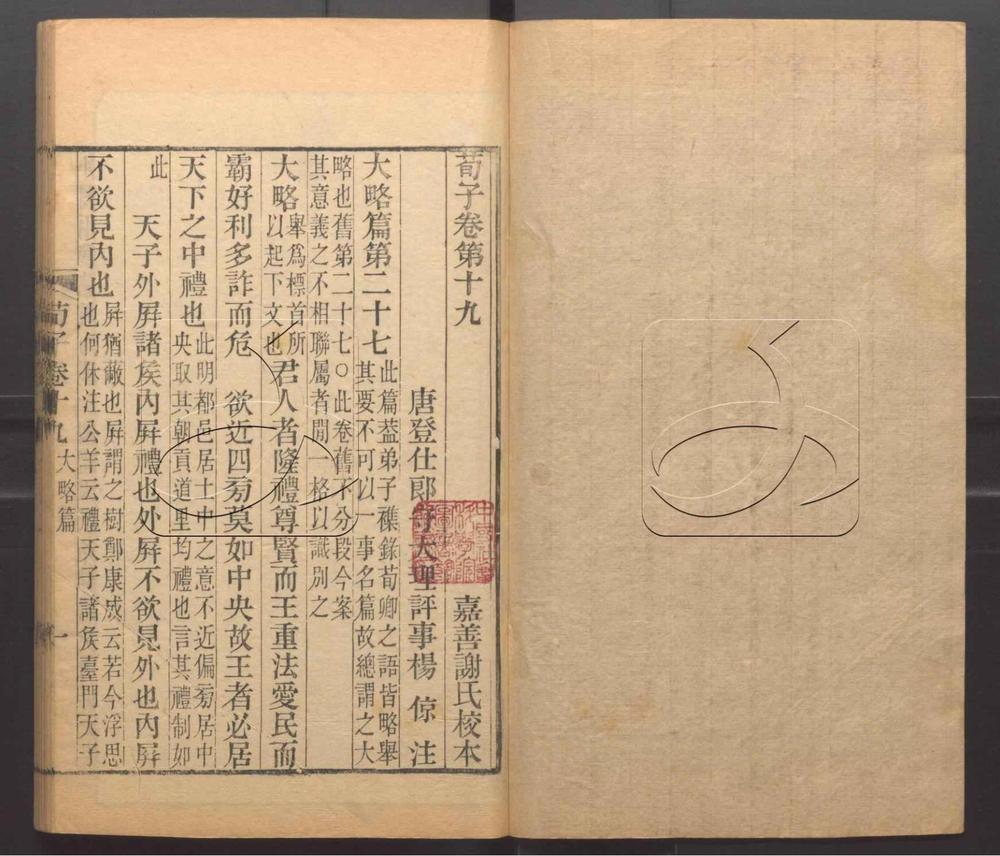 荀子卷第十九
嘉善謝氏校本
唐登仕郎守大理評事楊 倞 注
大略篇第二十七
此篇葢弟子雜錄荀卿之語皆略舉
其要不可以一事名篇故總謂之大
略也舊第二十七○此卷舊不分段今案
其意義之不相聯屬者閒一格以識別之
大略
舉爲標首所
以起下文也
君人者隆禮尊賢而王重法愛民而
霸好利多詐而危 欲近四旁莫如中央故王者必居
天下之中禮也
此明都邑居土中之意不近偏旁居中
央取其朝貢道里均禮也言其禮制如
此
天子外屛諸矦內屛禮也外屛不欲見外也內屛
不欲見內也
屛猶蔽也屛謂之樹鄭康成云若今浮思
也何休注公羊云禮天子諸矦臺門天子
荀子卷十九
大略篇
一